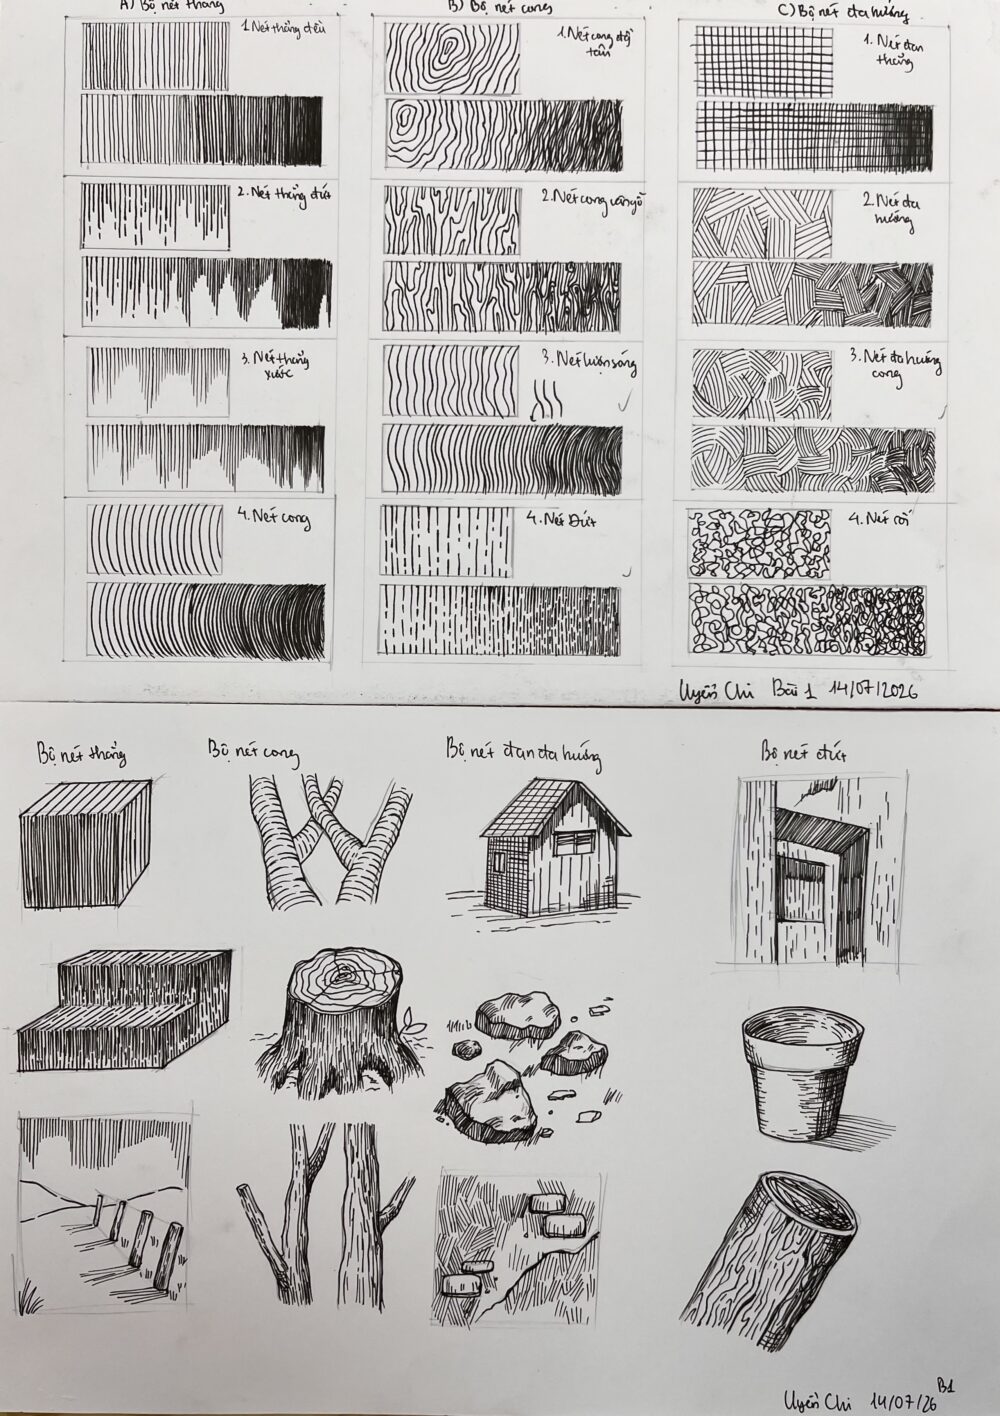 A) Bộ nét thẳng
1. Nét thẳng đều
2. Nét thẳng đứt
3. Nét thẳng
xước
4. Nét cong
B) Bộ nét cong
1. Nét cong đồ
tâm
2. Nét cong vân gỗ
3. Nét lượn sóng
4. Nét Đứt
C) Bộ nét đa hướng
1. Nét đan
thẳng
2. Nét đa
hướng
3. Nét đa hướng
cong
4. Nét rối
Uyển Chi Bài 1 14/07/2026
Bộ nét thẳng
Bộ nét cong
Bộ nét đan đa hướng
Bộ nét đứt
B1
Uyển Chi 14/07/26